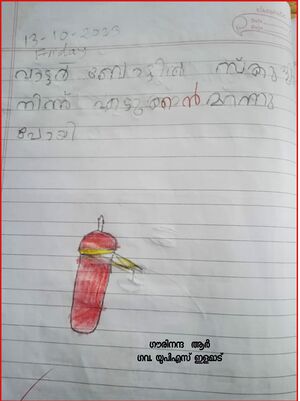 13-10-2023
Friday
വാട്ടർ ബോട്ടിൽ സ്കൂളിൽ
നിന്ന് എടുക്കാൻ മറന്നു
പോയി
ഗൗരിനന്ദ ആർ
ഗവ. യുപിഎസ് ഇളമാട്